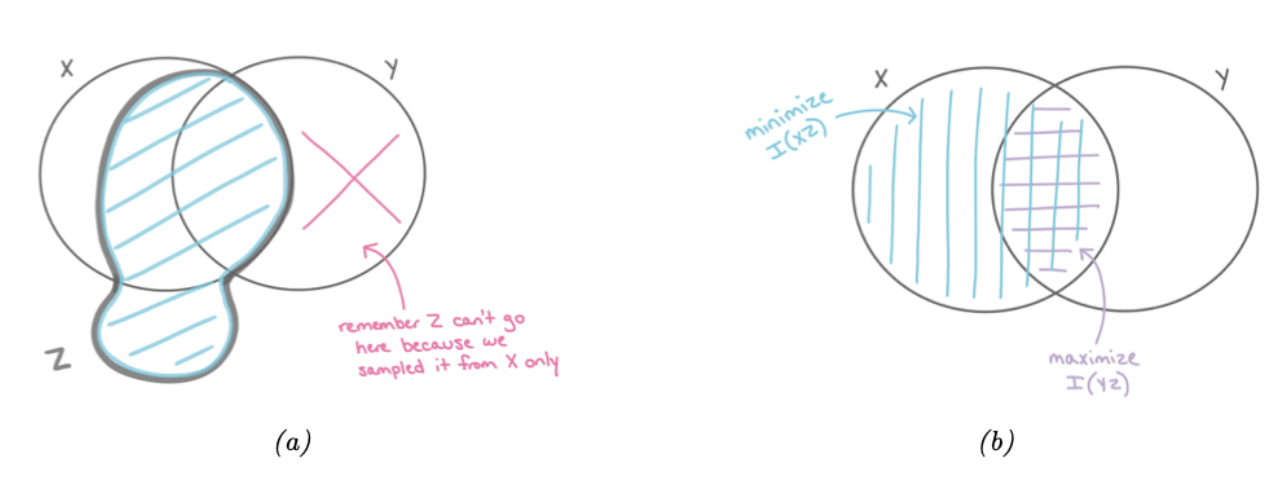 X
Y
Z
remember Z can't go
here because we
sampled it from X only
(a)
X
Y
minimize
I(XZ)
maximize
I(YZ)
(b)